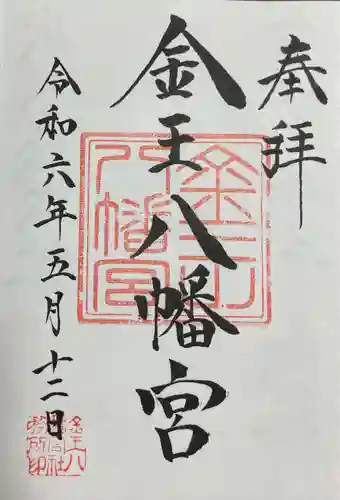 奉拝
金王八幡宮
令和六年五月十二日
金王八幡宮